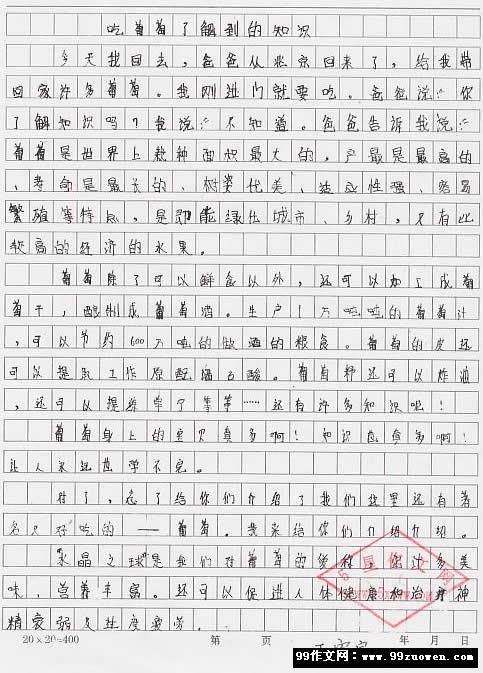 吃葡萄了解到的知识
今天我回去，爸爸从北京回来了，给我带
回家许多葡萄。我刚进门就要吃。爸爸说："你
了解知识吗？我说："不知道。爸爸告诉我说："
葡萄是世界上栽种面积最大的，产最是最高的
、寿命是最长的、树姿优美、适应性强、容易
繁殖等特点，是即能绿化城市、乡村，又有比
较高的经济的水果。
葡萄除了可以鲜食以外，还可以加工成葡
萄干，酿制成葡萄酒。生产1万吨的葡萄汁
，可以节约600万吨的做酒的粮食。葡萄的皮还
可以提取工作原酒石酸。葡萄籽还可以炸油
，还可以提炼单宁等等……还有许多知识呢！
葡萄身上的宝贝真多啊！知识也真多啊！
让人永远也学不完。
对了，忘了给你们介绍了我们这里还有著
名又好吃的——葡萄。我来给你们介绍介绍。
"水晶之球"是我们对葡萄的爱称，
味，营养丰富。还可以促进人体健康和治疗神
精衰弱及过度疲劳。
20×20=400 第 页 年 月 日
99作文网：www.99zuowen.com